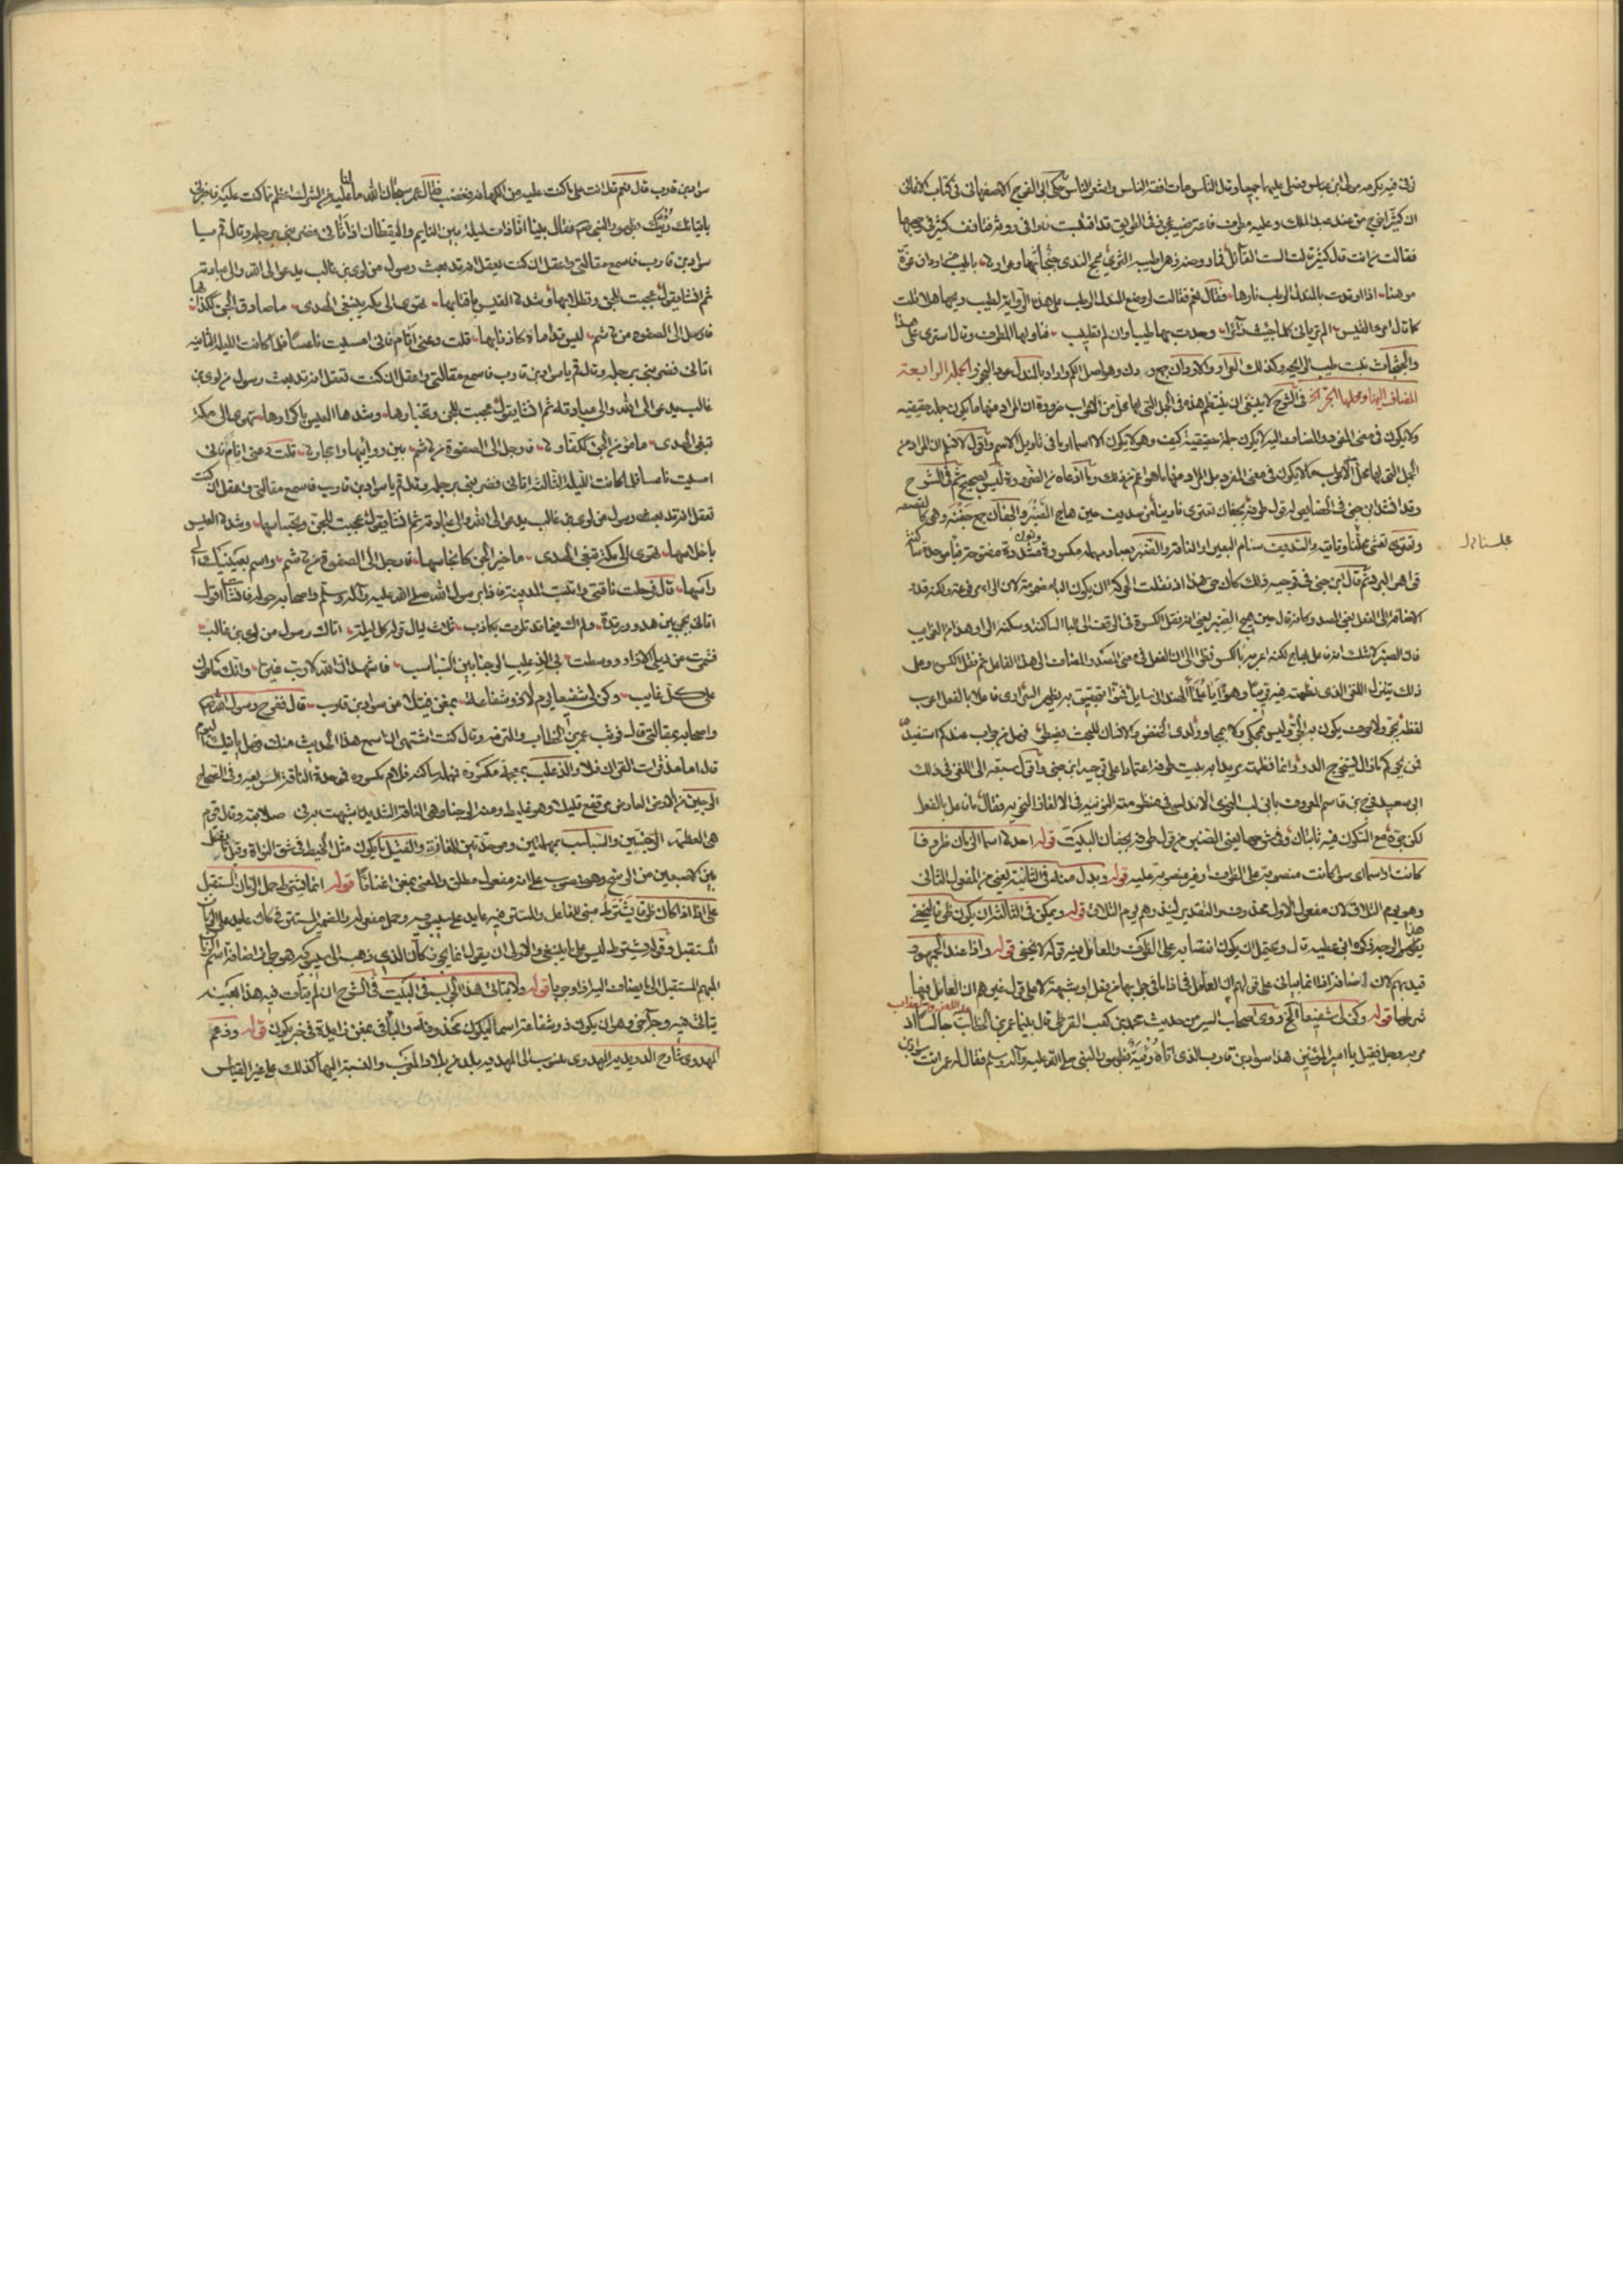 توفي فيه عكرمة مولى ابن عباس رضي الله عنهما جميعا وقال الناس مات افقه الناس واشعر الناس حكى ابو الفرج الاصفهاني في كتاب الاغاني
ان كثيرا خرج من عند عبد الملك وعليه مطرف فاعترضته عجوز في الطريق قد اقتبست نارا في روثة فتافف كثير في وجهها
فقالت من انت قال كثير قالت الست القائل فما روضة زهراء طيبة الثرى يمج الندى جثجاثها وعرارها باطيب من اردان عزة
موهنا اذا اوقدت بالمندل الرطب نارها فقال نعم فقالت لو وضع المندل الرطب على هذه الروثة لطيب ريحها هلا قلت
كما قال امرؤ القيس الم ترياني كلما جئت زائرا وجدت بها طيبا وان لم تطيب فناولها المطرف وقال استري على هذا
والجثجاث نبت طيب الريح وكذلك العرار والاردان جمع ردن وهو اصل الكم واراد بالمندل عود البخور الجملة الرابعة
المضاف اليها ومحلها الجر الخ في الشرح لا ينبغي ان ينتظم هذه في الجمل التي لها محل من الاعراب ضرورة ان المراد منها ما يكون جملة حقيقية
ولا يكون في معنى المفرد والمضاف اليه لا يكون جملة حقيقية كيف وهو لا يكون الا اسما او ما في تاويل الاسم واقول لا نسلم ان المراد من
الجمل التي لها محل من الاعراب ما لا يكون في معنى المفرد بل المراد منها ما هو اعم من ذلك وما ادعاه من الضرورة ليس بصحيح ثم في الشرح
وقد انشد ابن جني في الخصايص لقول طرفة بجفان تعتري نادينا من سديف حين هاج الصنبر والجفان جمع جفنة وهي كالقصعة
وتعتري تغشى مجلسنا وتاتيه والسديف سنام البعير او الناقة والصنبر بصاد مهملة مكسورة ونون مشددة مفتوحة وباء موحدة ساكنة
مجلسنا
قواهم البرد ثم قال ابن جني في توجيه ذلك كان حق هذا اذ نقلت الحركة ان يكون الباء مضمومة لان الراء مرفوعة ولكنه قدر
الاضافة الى الفعل يعني المصدر كانه قال حين هيج الصنبر يعني انه نقل الكسرة في الوقف الى الباء الساكنة وسكنة الراء وهذا من الغرايب
ذلك يتنزل اللغز الذي نظمته فيه قريبا وهو ايا علماء الهند اني سايل فمنوا بتحقيق به يظهر السر ارى فاعلا بالفعل اعرب
لفظه بجر ولا حرف يكون به الجر وليس بمحكي ولا بمجاور لدى الخفض والانسان للبحث يضطر فهل من جواب عندكم استفيده
فمن بحركم ما زال يستخرج الدر وانما نظمته مريدا به بيت طرفة اعتمادا على توجيه ابن جني واقول سبقه الى اللغز في ذلك
ابو سعيد فرج بن قاسم المعروف بابن لب النحوي الاندلسي في منظومته النونية في الالغاز النحوية فقال ما فاعل بالفعل
لكن جره مع السكون فيه ثابتان وفي شرحها يعني الصنبر من قول طرفة بجفان البيت قوله احدها اسماء الزمان ظروفا
كانت او اسماء سواء كانت منصوبة على الظرف او غير منصوبة عليه قوله وبدل منه في الثانية يعني من المفعول الثاني
وهو يوم التلاق لان مفعول الاول محذوف والتقدير لينذرهم يوم التلاق قوله ويمكن في الثالثة ان يكون ظرفا ليخفى
هذا الوجه ذكره ابن عطية قال ويحتمل ان يكون انتصابه على الظرف والعامل فيه قوله لا يخفى قوله واذا عند الجمهور
شرطها قوله وكن لي شفيعا الخ روى اصحاب السير من حديث محمد بن كعب القرظي قال بينما عمر بن الخطاب جالسا اذ
مر به رجل فقيل يا امير المؤمنين هذا سواد بن قارب الذي اتاه رئيه بظهور النبي صلى الله عليه وآله وسلم فقال له عمر انت سواد بن
سواد بن قارب قال نعم قال انت على ما كنت عليه من الكهانة فغضب فقال عمر سبحان الله ما كنا عليه من الشرك اعظم مما كنت عليه فاخبرني
باتيانك رئيك بظهور النبي صلعم فقال بينا انا ذات ليلة بين النايم واليقظان اذ اتاني فضربني برجله وقال قم يا
سواد بن قارب فاسمع مقالتي واعقل ان كنت تعقل انه قد بعث رسول من لوي بن غالب يدعو الى الله والى عبادته
ثم انشا يقول عجبت للجن وتطلابها وشدها العيس باقتابها تهوي الى مكة تبغي الهدى ما صادقا الجن ككذابها
فارحل الى الصفوة من هاشم ليس قداماها كاذنابها قلت دعني انام فاني امسيت ناعسا فلما كانت الليلة الثانية
اتاني فضربني برجله وقال قم يا سواد بن قارب فاسمع مقالتي واعقل ان كنت تعقل انه قد بعث رسول من لوي بن
غالب يدعو الى الله والى عبادته ثم انشا يقول عجبت للجن وتخبارها وشدها العيس باكوارها تهوي الى مكة
تبغي الهدى ما مؤمن الجن ككفارها فارحل الى الصفوة من هاشم بين روابيها واحجارها قلت دعني انام فاني
امسيت ناعسا فلما كانت الليلة الثالثة اتاني فضربني برجله وقال قم يا سواد بن قارب فاسمع مقالتي واعقل ان كنت
تعقل انه قد بعث رسول من لوي بن غالب يدعو الى الله والى عبادته ثم انشا يقول عجبت للجن وتجساسها وشدها العيس
باحلاسها تهوي الى مكة تبغي الهدى ما خير الجن كانجاسها فارحل الى الصفوة من هاشم واسم بعينيك الى
راسها قال فرحلت ناقتي واتيت المدينة فاذا رسول الله صلى الله عليه وآله وسلم واصحابه حوله فانشات اقول
اتاني نجيي بين هدو ورقدة ولم اك فيما قد تلوت بكاذب ثلاث ليال قوله كل ليلة اتاك رسول من لوي بن غالب
فشمرت عن ذيلي الازار ووسطت بي الذعلب الوجنا بين السباسب فاشهد ان الله لا رب غيره وانك مامون
على كل غايب وكن لي شفيعا يوم لا ذو شفاعة بمغن فتيلا عن سواد بن قارب قال ففرح رسول الله
واصحابه بمقالتي قال فوثب عمر بن الخطاب والتزمه وقال كنت اشتهي ان اسمع هذا الحديث منك فهل ياتيك اليوم
قال اما منذ قرات القران فلا والذعلب بمعجمة مكسورة فمهملة ساكنة فلام مكسورة فموحدة الناقة السريعة وفي الصحاح
الوجين من الارض العارض يرتفع قليلا وهو غليظ ومنه الوجناء وهي الناقة الشديدة شبهت به في صلابته وقال قوم
هي العظيمة الوجنتين والسباسب بمهملتين وموحدتين المفازة والفتيل ما يكون مثل الخيط في شق النواة وقيل ما يفتل
بين الاصبعين من الوسخ وهو منصوب على انه مفعول مطلق والمعنى بمغن اغناء ما قوله انما يشترط حمل الزمان المستقبل
على اذا اذا كان ظرفا يشترط مبني للفاعل والمستتر فيه عايد على سيبويه وحمل مفعوله والضمير المستتر في كان عايد على الزمان
المستقبل وقوله يشترط ليس على ما ينبغي والاولى ان يقول انما يجوز كان الذي ذهب اليه سيبويه هو جواز اضافة اسم الزمان
المبهم المستقبل الى ما يضاف اليه اذا وجوبا قوله ولا يتاتى هذا الجواب في البيت في الشرح ان لم يتات فيه هذا بعينه
يتاتى فيه وجه اخر وهو ان يكون ذو شفاعة اسما ليكون محذوفة والباء في بمغن زايدة في خبر يكون قوله وزعم
المهدوي شارح الدريدية المهدوي منسوب الى المهدية بلد من بلاد المغرب والنسبة اليها كذلك على غير القياس